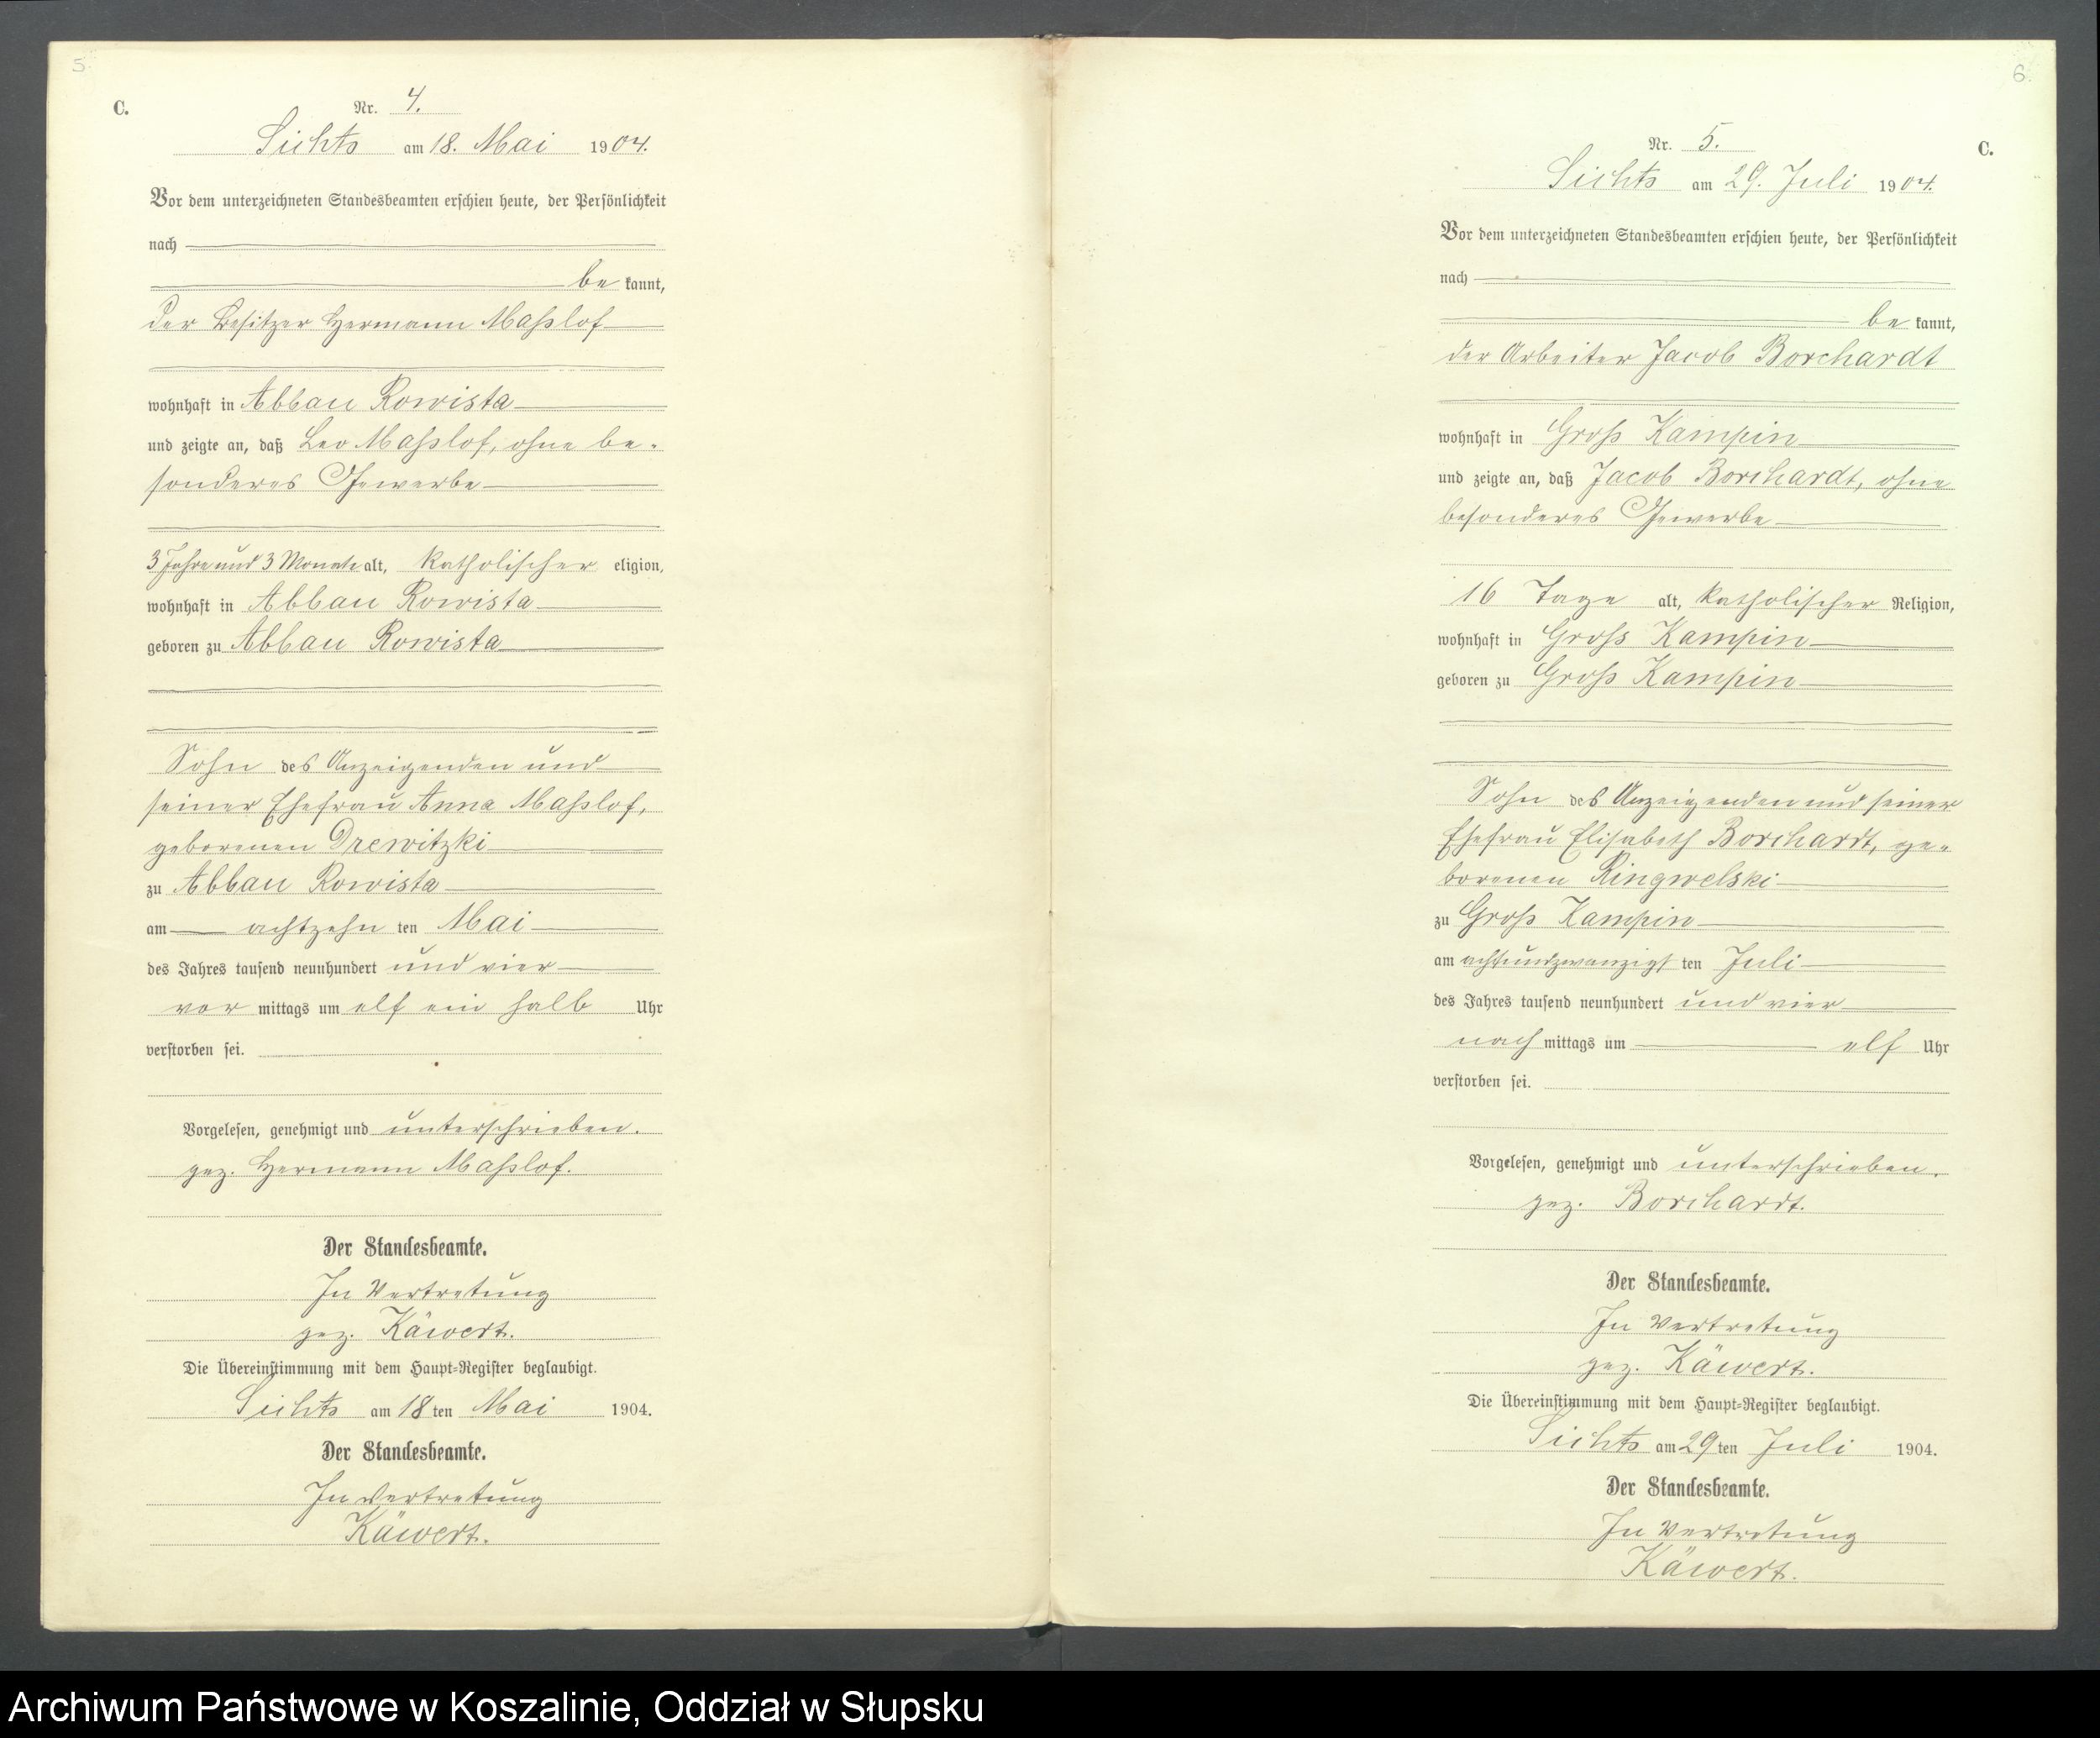 5
C.
Nr. 4.
Sichts am 18. Mai 1904.
Vor dem unterzeichneten Standesbeamten erschien heute, der Persönlichkeit
nach
be kannt,
der Besitzer Hermann Maßlof
wohnhaft in Abbau Rowista
und zeigte an, daß Leo Maßlof, ohne be-
sonderes Gewerbe
3 Jahre und 3 Monate alt, katholischer eligion,
wohnhaft in Abbau Rowista
geboren zu Abbau Rowista
Sohn des Anzeigenden und
seiner Ehefrau Anna Maßlof,
geborenen Drewitzki
zu Abbau Rowista
am achtzehn ten Mai
des Jahres tausend neunhundert und vier
vor mittags um elf ein halb Uhr
verstorben sei.
Vorgelesen, genehmigt und unterschrieben.
gez. Hermann Maßlof.
Der Standesbeamte.
In Vertretung
gez. Käwert.
Die Übereinstimmung mit dem Haupt-Register beglaubigt.
Sichts am 18 ten Mai 1904.
Der Standesbeamte.
In Vertretung
Käwert.
6
C.
Nr. 5.
Sichts am 29. Juli 1904.
Vor dem unterzeichneten Standesbeamten erschien heute, der Persönlichkeit
nach
be kannt,
der Arbeiter Jacob Borchardt
wohnhaft in Groß Kampin
und zeigte an, daß Jacob Borchardt, ohne
besonderes Gewerbe
16 Tage alt, katholischer Religion,
wohnhaft in Groß Kampin
geboren zu Groß Kampin
Sohn des Anzeigenden und seiner
Ehefrau Elisabeth Borchardt, ge-
borenen Ringwelski
zu Groß Kampin
am achtundzwanzigst ten Juli
des Jahres tausend neunhundert und vier
nach mittags um elf Uhr
verstorben sei.
Vorgelesen, genehmigt und unterschrieben.
gez. Borchardt.
Der Standesbeamte.
In Vertretung
gez. Käwert.
Die Übereinstimmung mit dem Haupt-Register beglaubigt.
Sichts am 29 ten Juli 1904.
Der Standesbeamte.
In Vertretung
Käwert.
Archiwum Państwowe w Koszalinie, Oddział w Słupsku